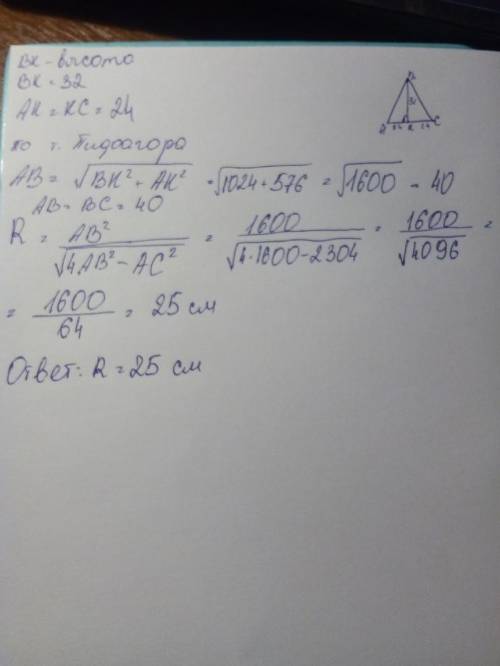 BK - высота
BK = 32
AK = KC = 24
по т. Пифагора
AB = √(BK² + AK²) = √(1024 + 576) = √1600 = 40
AB = BC = 40
R = AB² / √(4AB² - AC²) = 1600 / √(4·1600 - 2304) = 1600 / √4096 =
= 1600 / 64 = 25 см
Ответ: R = 25 см
B
32
A 24 K 24 C